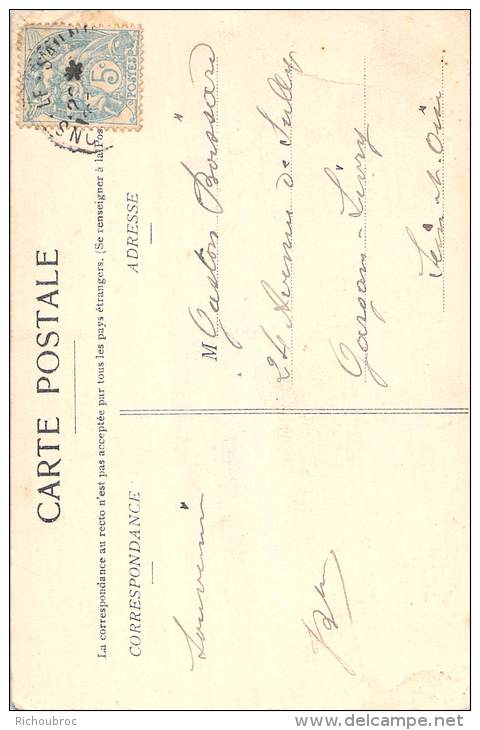 CARTE POSTALE
La correspondance au recto n'est pas acceptée par tous les pays étrangers. (Se renseigner à la Pos
CORRESPONDANCE
ADRESSE
Souvenir
M Gaston Boissard
24 Avenue de Sully
Gargan-Livry
Seine et Oise
5c
POSTES
ONS LE
Richoubroc
delcampe.net